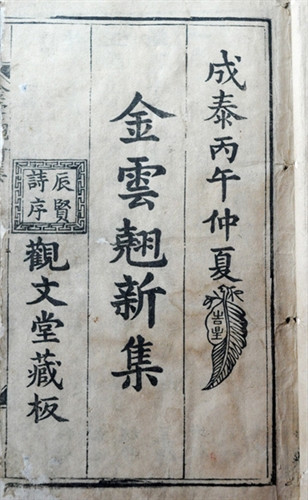 成泰丙午仲夏
金雲翹新集
辰賢
詩序
觀文堂藏板